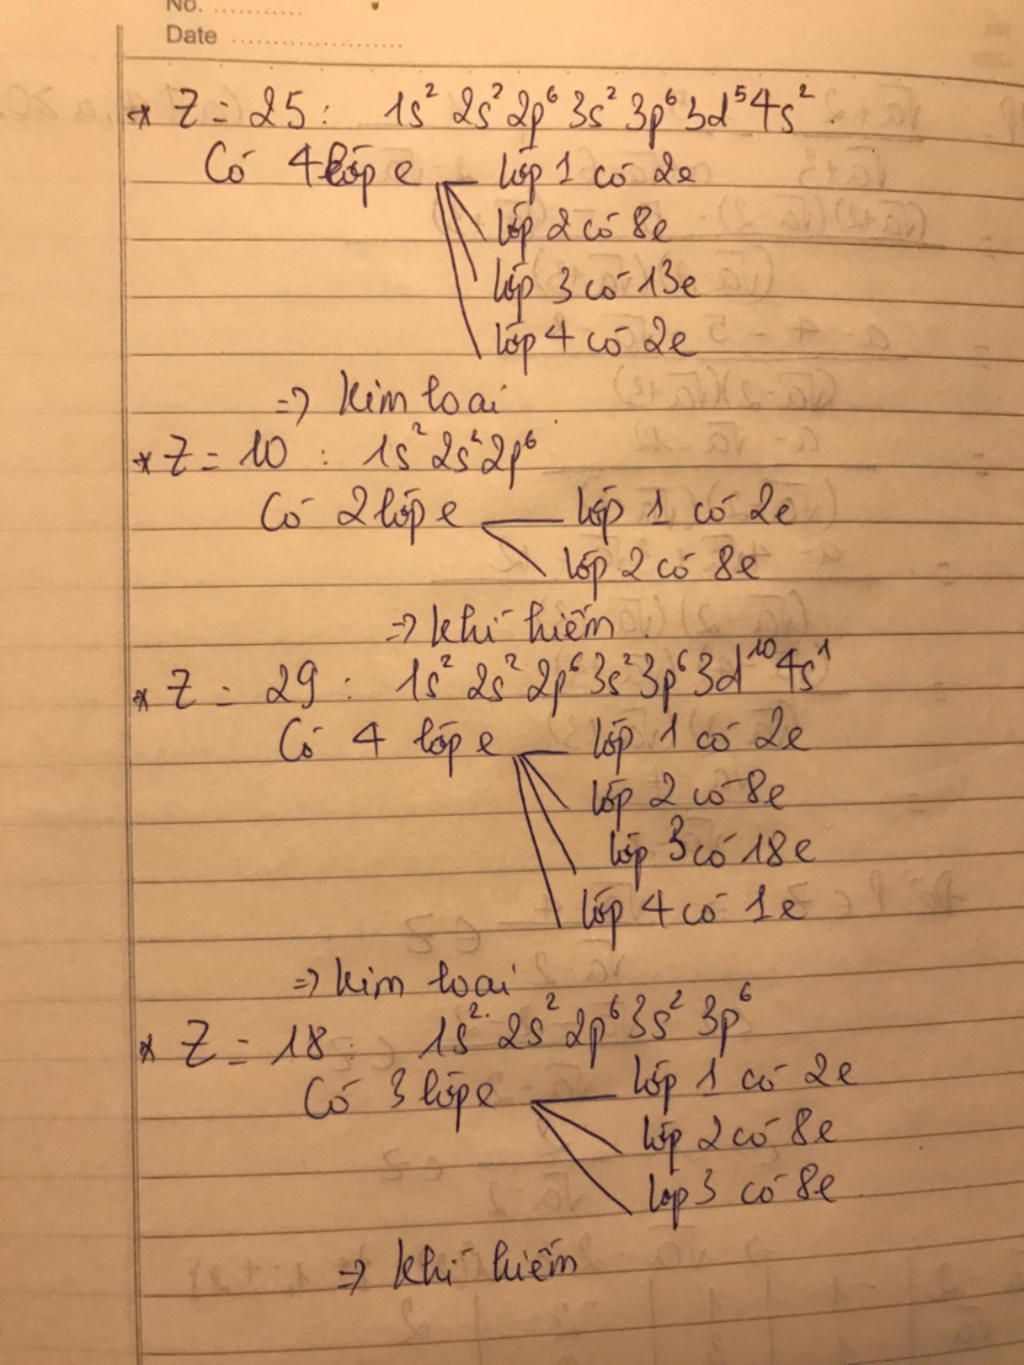 No. ............
Date ........................
* Z = 25 : 1s² 2s² 2p⁶ 3s² 3p⁶ 3d⁵ 4s²
Có 4 lớp e lớp 1 có 2e
lớp 2 có 8e
lớp 3 có 13e
lớp 4 có 2e
=> Kim loại
* Z = 10 : 1s² 2s² 2p⁶
Có 2 lớp e lớp 1 có 2e
lớp 2 có 8e
=> Khí hiếm
* Z = 29 : 1s² 2s² 2p⁶ 3s² 3p⁶ 3d¹⁰ 4s¹
Có 4 lớp e lớp 1 có 2e
lớp 2 có 8e
lớp 3 có 18e
lớp 4 có 1e
=> Kim loại
* Z = 18 : 1s² 2s² 2p⁶ 3s² 3p⁶
Có 3 lớp e lớp 1 có 2e
lớp 2 có 8e
lớp 3 có 8e
=> Khí hiếm